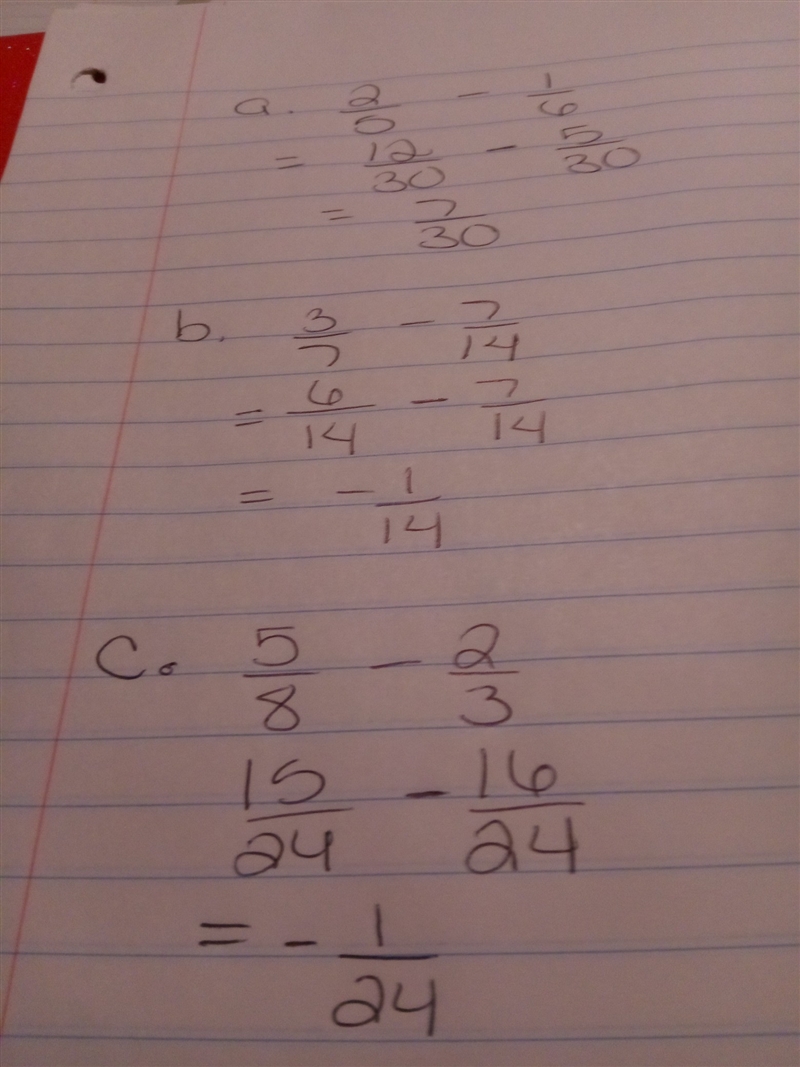 a. 2/5 - 1/6
= 12/30 - 5/30
= 7/30
b. 3/7 - 7/14
= 6/14 - 7/14
= - 1/14
C. 5/8 - 2/3
15/24 - 16/24
= - 1/24